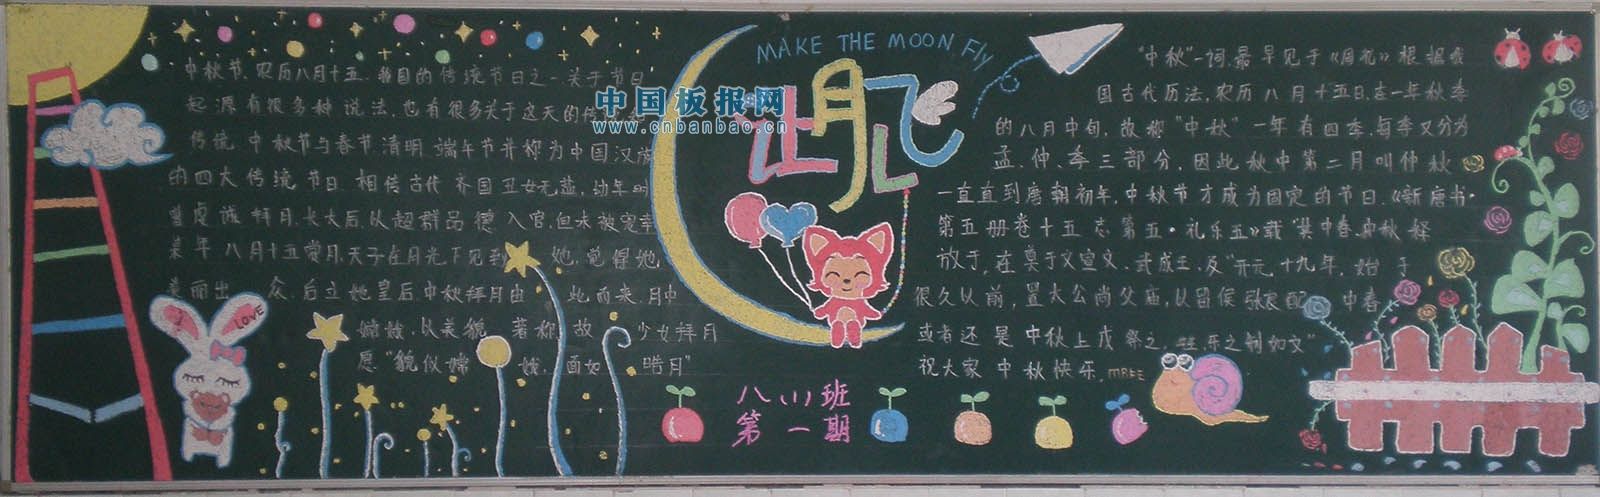 MAKE THE MOON Fly
让月儿飞
中国板报网
www.cnbanbao.cn
中秋节、农历八月十五、我国的传统节日之一.关于节日
起源有很多种说法,也有很多关于这天的传
传统.中秋节与春节.清明.端午节并称为中国汉族
的四大传统节日.相传古代齐国丑女无盐,幼年时
曾虔诚拜月.长大后,以超群品德入宫.但未被宠幸
某年八月十五赏月.天子在月光下见到她,觉得她
美丽出众.后立她皇后.中秋拜月由此而来.月中
嫦娥,以美貌著称,故少女拜月
愿"貌似嫦娥,面如皓月"
LOVE
"中秋"一词,最早见于《周礼》根据我
国古代历法,农历八月十五日,在一年秋季
的八月中旬,故称"中秋"一年有四季,每季又分为
孟、仲、季三部分,因此秋中第二月叫仲秋
一直直到唐朝初年,中秋节才成为固定的节日.《新唐书·
第五册卷十五志第五·礼乐五》载"其中春、中秋释
放于,在奠于文宣文、武成王,及"开元十九年,始于
很久以前,置太公尚父庙,以留侯张良配 中春
或者还是中秋上戊祭之,牲乐之制如文"
祝大家中秋快乐,
八(1)班
第一期